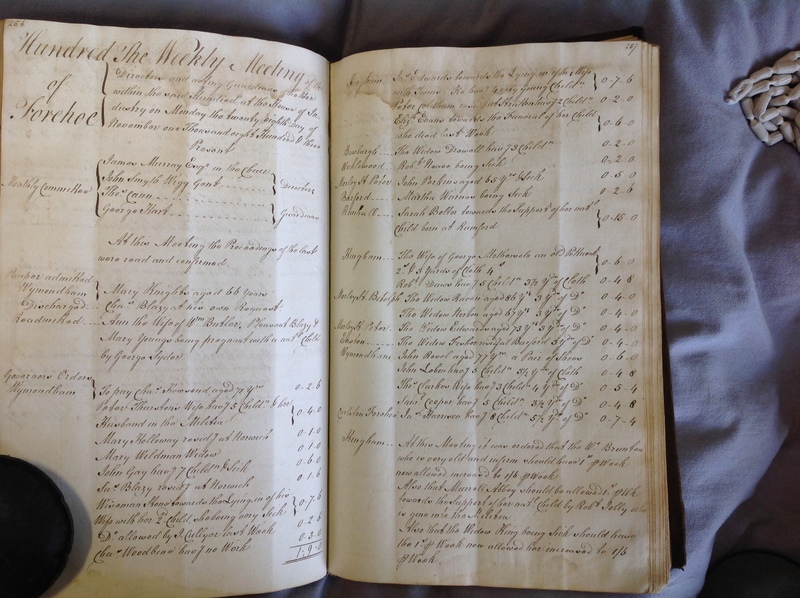 266
Hundred The Weekly Meeting of the
of Directors and acting Guardians of the Poor
Forehoe within the said Hundred at the House of In-
dustry on Monday the twenty eighth Day of
November one Thousand eight Hundred & three
Present
Monthly Committee James Murray Esqr. in the Chair
John Smyth Wigg Gent Directors
Thos. Cann
George Hart Guardian
At this Meeting the Proceedings of the last
were read and confirmed.
Pauper admitted
Wymondham Mary Knights aged 66 Years
Discharged Chas. Blazy at his own Request
Readmitted Ann the Wife of Wm. Butler, Pleasant Blazy &
Mary Young being pregnant with a nat. Child
by George Ryder
Governors Orders
Wymondham To pay Chas. Townsend aged 71 Yrs. 0-2-6
Peter Thurston's Wife has 5 Childn. & her
Husband in the Militia 0-4-0
Mary Holloway resid. at Norwich 0-1-0
Mary Weldman Widow 0-1-0
John Gay has 7 Childn. & Sick 0-6-0
Jas. Blazy resid. at Norwich 0-1-6
Wiseman Hono towards the Lying in of his
Wife with her 2d. Child she being very Sick 0-7-6
Do. allowed by J. Cullyer last Week 0-2-6
Chas. Woodbead has no Work 0-3-0
1-9-0
267
Hingham Jas. Edwards towards the Lying in of his Wife
with Twins. He has 4 very Young Childn. 0-7-6
Peter Coldham 2 Childn. 0-2-0
Elizh. Evans towards the Funeral of her Child
who died last Week 0-6-0
The Widow has 3 Childn. 0-2-0
Robt. being Sick 0-2-0
Morley St. Peter John Perkins aged 65 Yrs. & Sick 0-5-0
Barford Martha Warnes being Sick 0-2-6
Sarah Botter towards the Support of her nat.
Child born at Runford 0-15-0
Hingham The Wife of George an old Petticoat
2 & 3 Yards of Cloth 0-6-0
Robt. Daws has 5 Childn. 3½ Yds. of Cloth 0-4-8
Morley St. Botolph The Widow aged 86 Yrs. 3 Yds. of Do. 0-4-0
The Widow aged 67 Yrs. 3 Yds. of Do. 0-4-0
Morley St. Peter The Widow Edwards aged 73 Yrs. 3 Yds. of Do. 0-4-0
The Widow at Barford 3 Yds. of Do. 0-4-0
Wymondham John aged 77 Yrs. a Pair of Shoes 0-6-0
John has 5 Childn. 3½ Yds. of Cloth 0-4-8
Thos. Clarkes Wife has 3 Childn. 4 Yds. of Do. 0-5-4
Cooper has 5 Childn. 3½ Yds. of Do. 0-4-8
Carleton Forehoe Jas. Harrison has 8 Childn. 5½ Yds. of Do. 0-7-4
Hingham At this Meeting it was ordered that the Wo. Brunton
who is very old and infirm should have 1s. p Week
now allowed increased to 1/6 p Week
Also that Murrell Abbey should be allowed 1s. p Wk.
towards the Support of her nat. Child by Robt. Jolly who
is gone into the Militia
Also that the Widow King being Sick should have
the 1s. p Week now allowed her increased to 1/6
p Week.